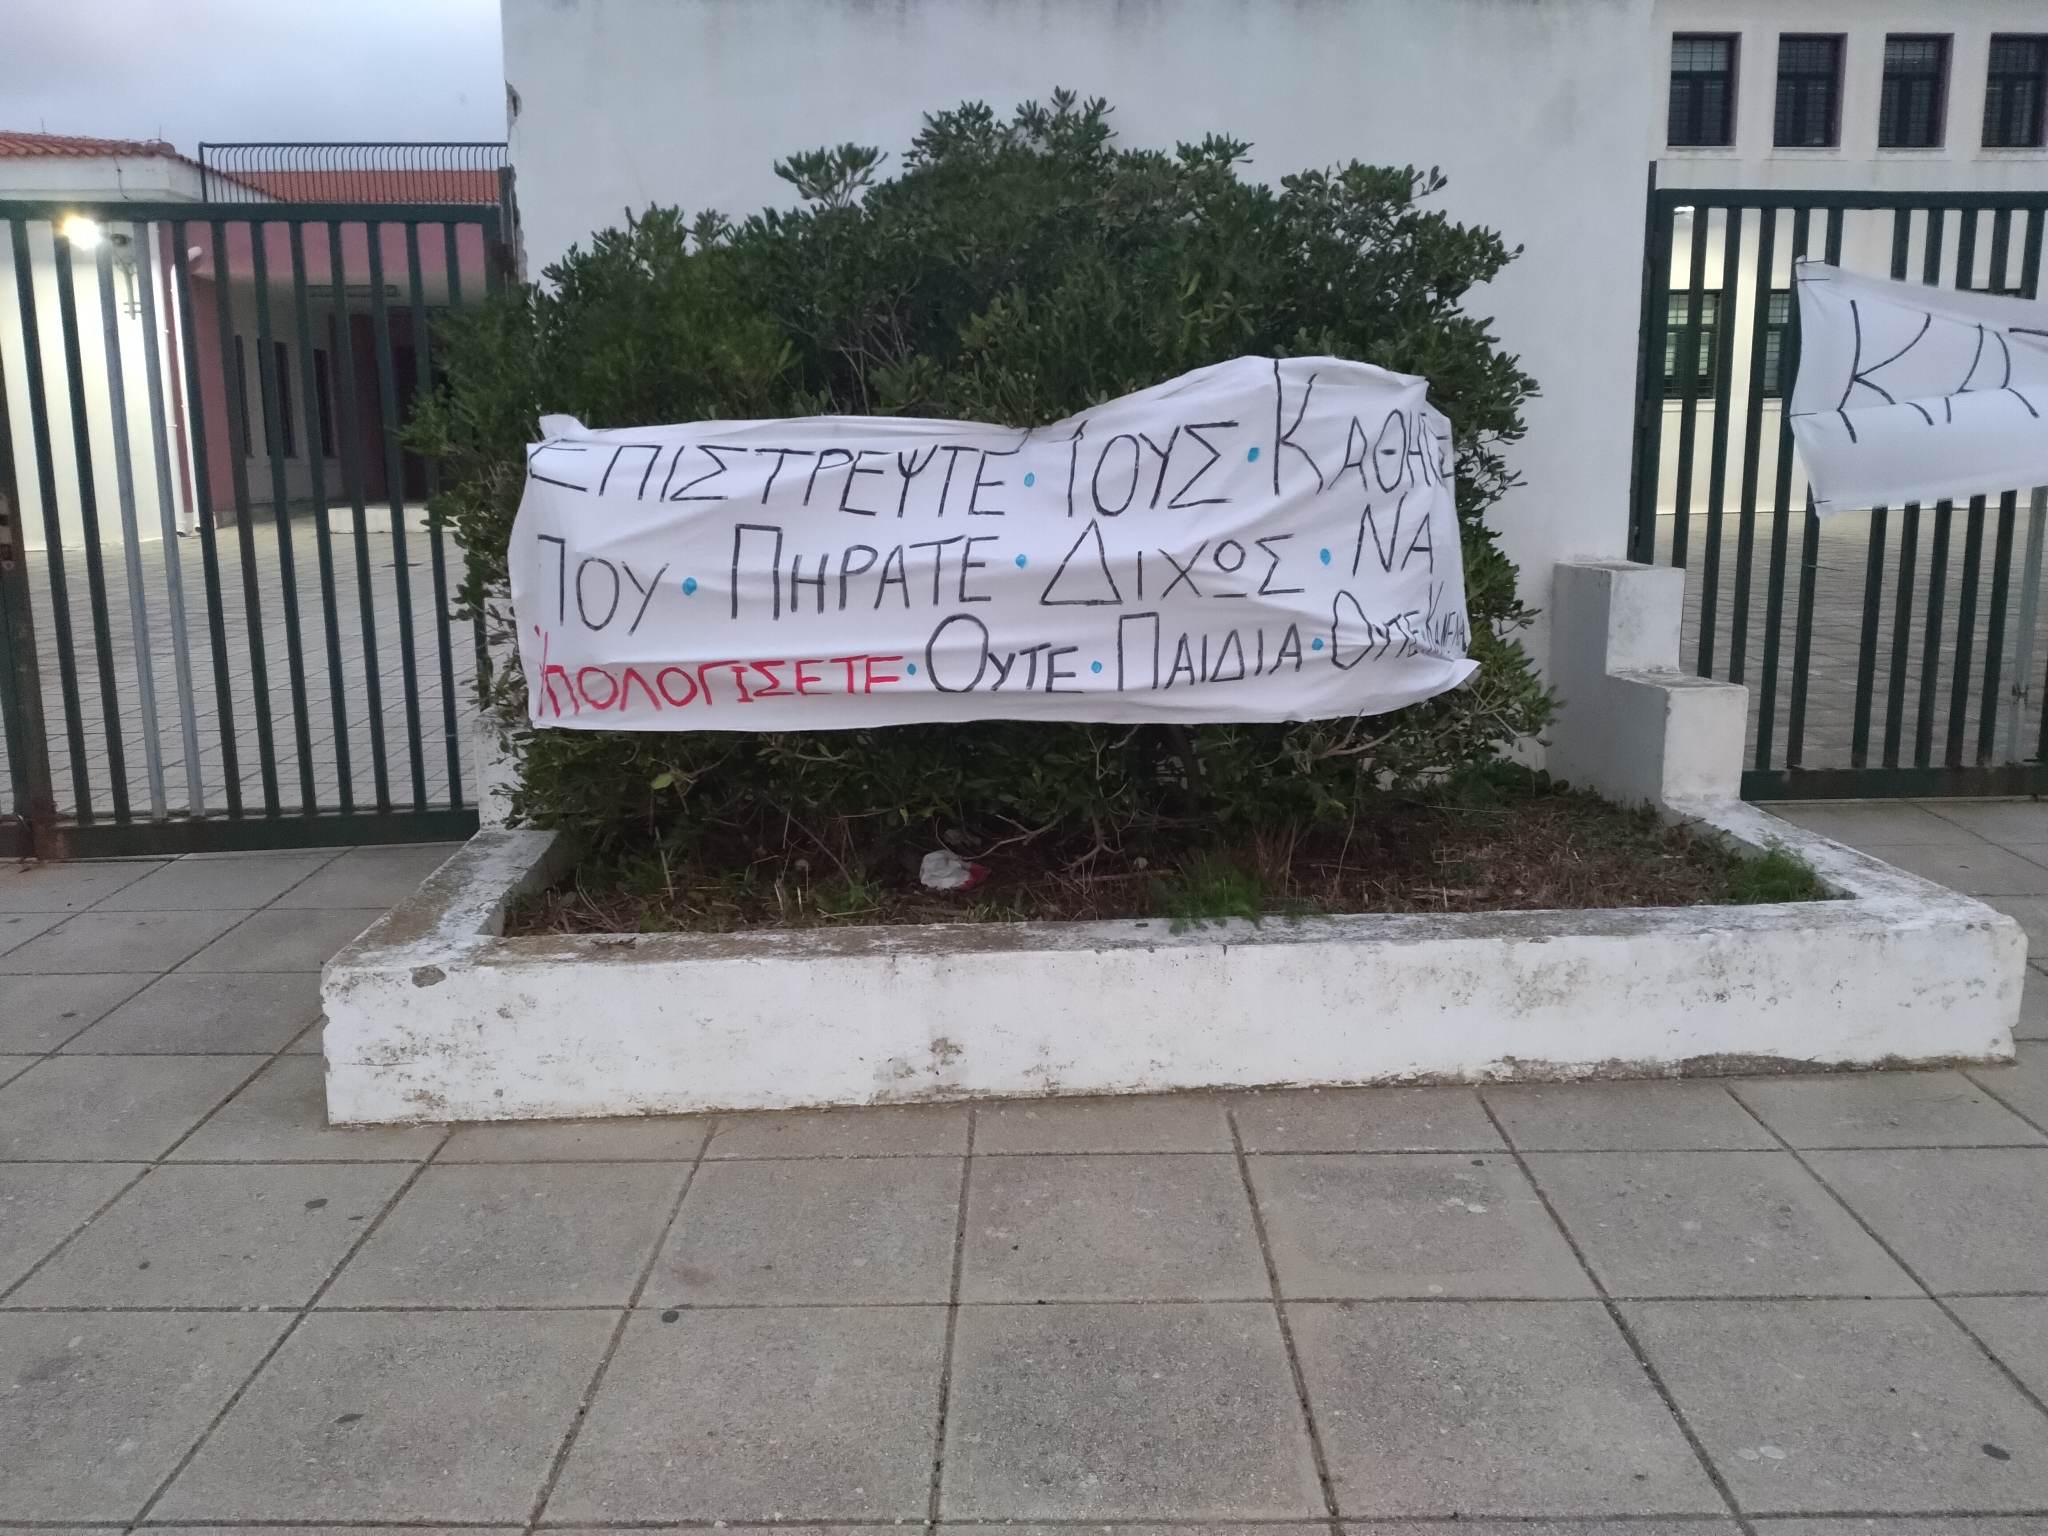 ΕΠΙΣΤΡΕΨΤΕ · ΤΟΥΣ ·
ΠΟΥ · ΠΗΡΑΤΕ · ΔΙΧΩΣ · ΝΑ
ΥΠΟΛΟΓΙΣΕΤΕ · ΟΥΤΕ · ΠΑΙΔΙΑ · ΟΥΤΕ